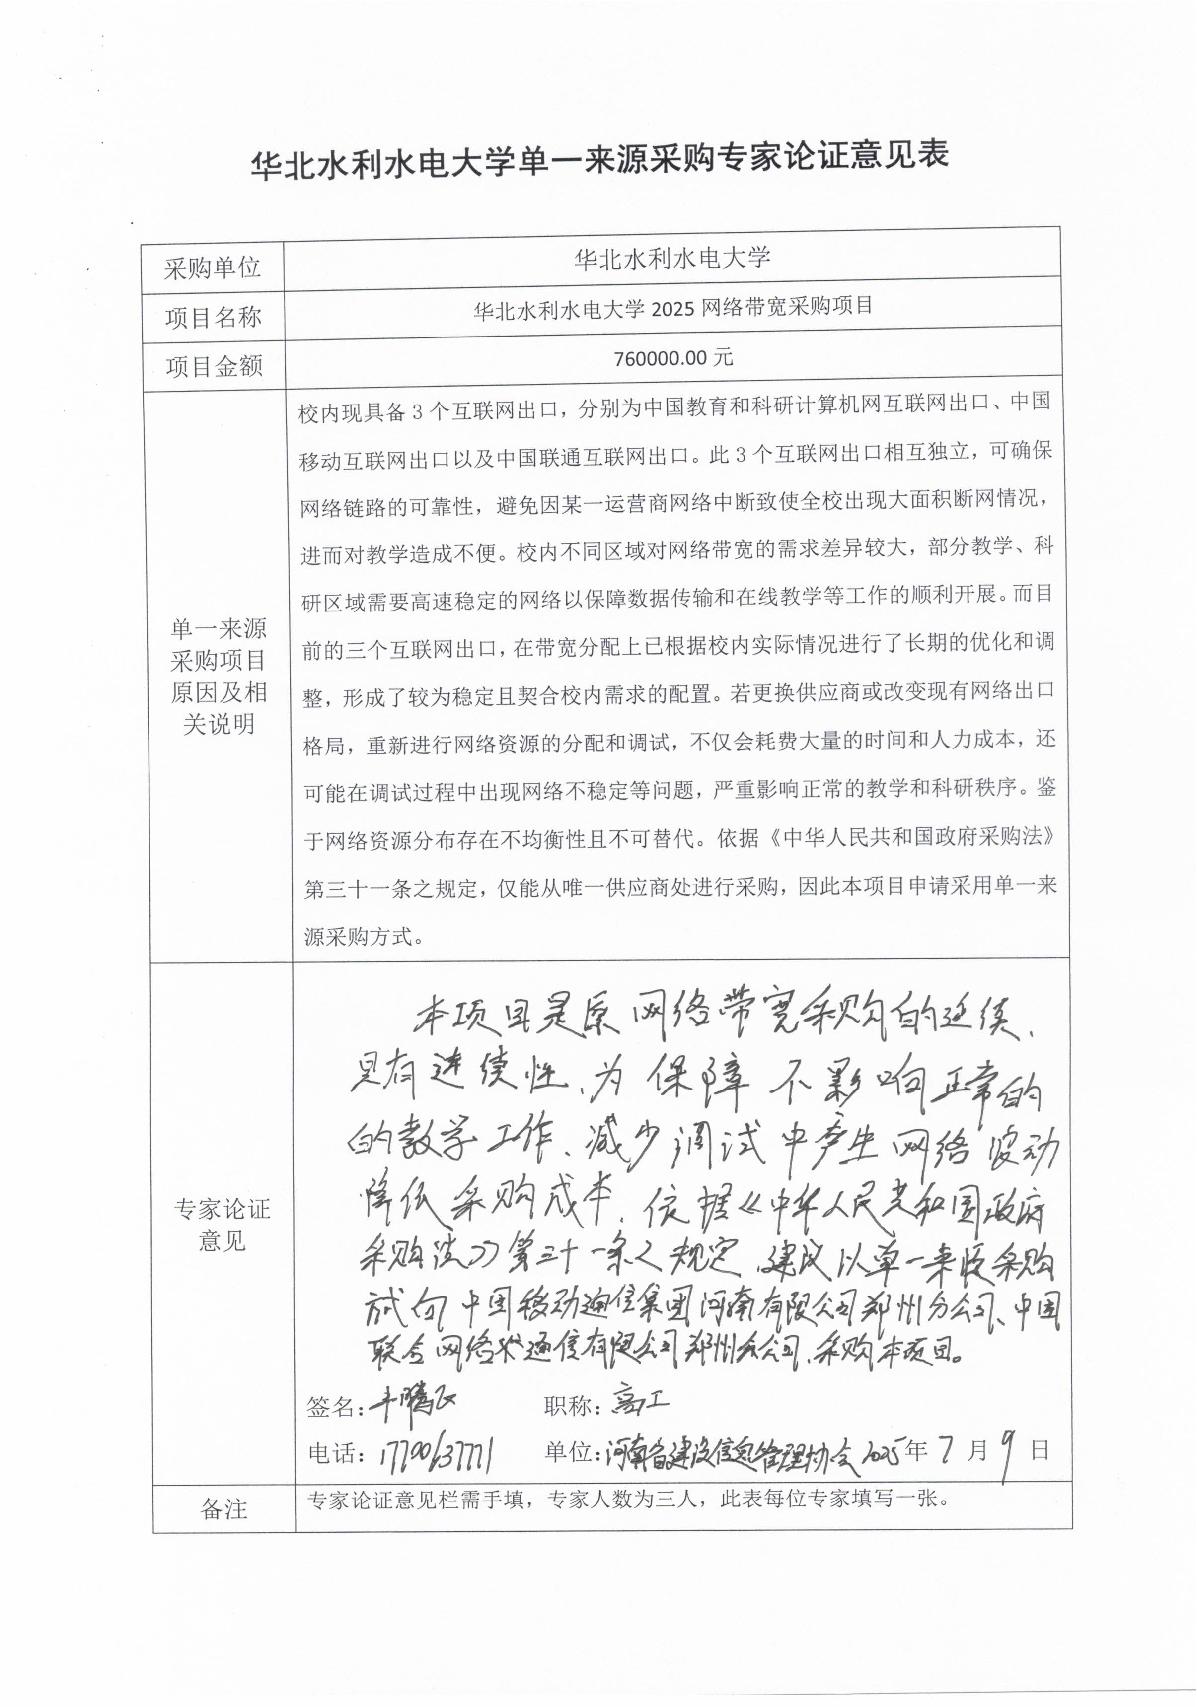 华北水利水电大学单一来源采购专家论证意见表
采购单位
华北水利水电大学
项目名称
华北水利水电大学 2025 网络带宽采购项目
项目金额
760000.00 元
单一来源
采购项目
原因及相
关说明
校内现具备 3 个互联网出口，分别为中国教育和科研计算机网互联网出口、中国
移动互联网出口以及中国联通互联网出口。此 3 个互联网出口相互独立，可确保
网络链路的可靠性，避免因某一运营商网络中断致使全校出现大面积断网情况，
进而对教学造成不便。校内不同区域对网络带宽的需求差异较大，部分教学、科
研区域需要高速稳定的网络以保障数据传输和在线教学等工作的顺利开展。而目
前的三个互联网出口，在带宽分配上已根据校内实际情况进行了长期的优化和调
整，形成了较为稳定且契合校内需求的配置。若更换供应商或改变现有网络出口
格局，重新进行网络资源的分配和调试，不仅会耗费大量的时间和人力成本，还
可能在调试过程中出现网络不稳定等问题，严重影响正常的教学和科研秩序。鉴
于网络资源分布存在不均衡性且不可替代。依据《中华人民共和国政府采购法》
第三十一条之规定，仅能从唯一供应商处进行采购，因此本项目申请采用单一来
源采购方式。
专家论证
意见
本项目是原网络带宽采购的延续、
具有连续性、为保障不影响正常的
的教学工作、减少调试中产生网络波动
降低采购成本，依据《中华人民共和国政府
采购法》第三十一条之规定、建议以单一来源采购
试向中国移动通信集团河南有限公司郑州分公司、中国
联合网络 通信有限公司郑州分公司、采购本项目。
签名： 腾飞 职称：高工
电话：17790637771 单位：河南省建设信息管理协会 2025年 7 月 9 日
备注
专家论证意见栏需手填，专家人数为三人，此表每位专家填写一张。